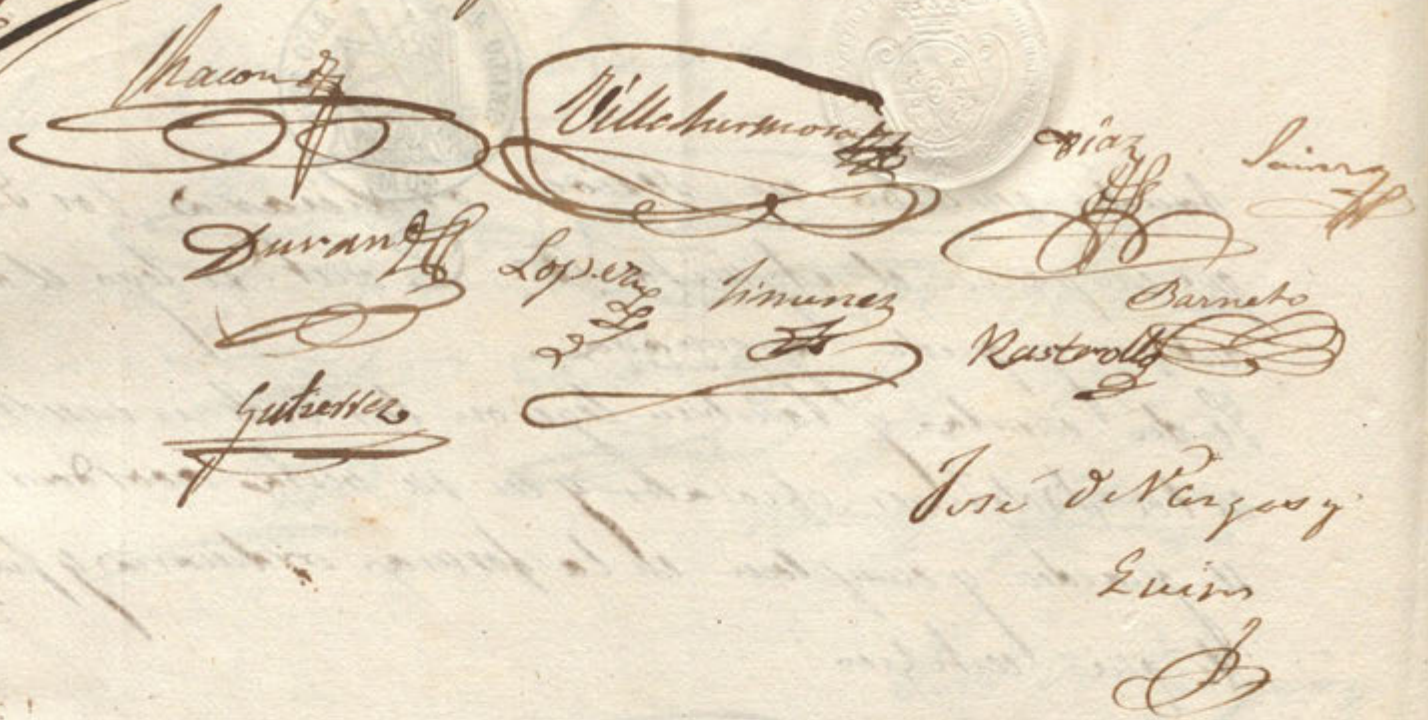 Chacon
Villahermosa
Diaz
Duran
Lopez
Jimenez
Barneto
Rastrollo
Gutierrez
José de Vargas y